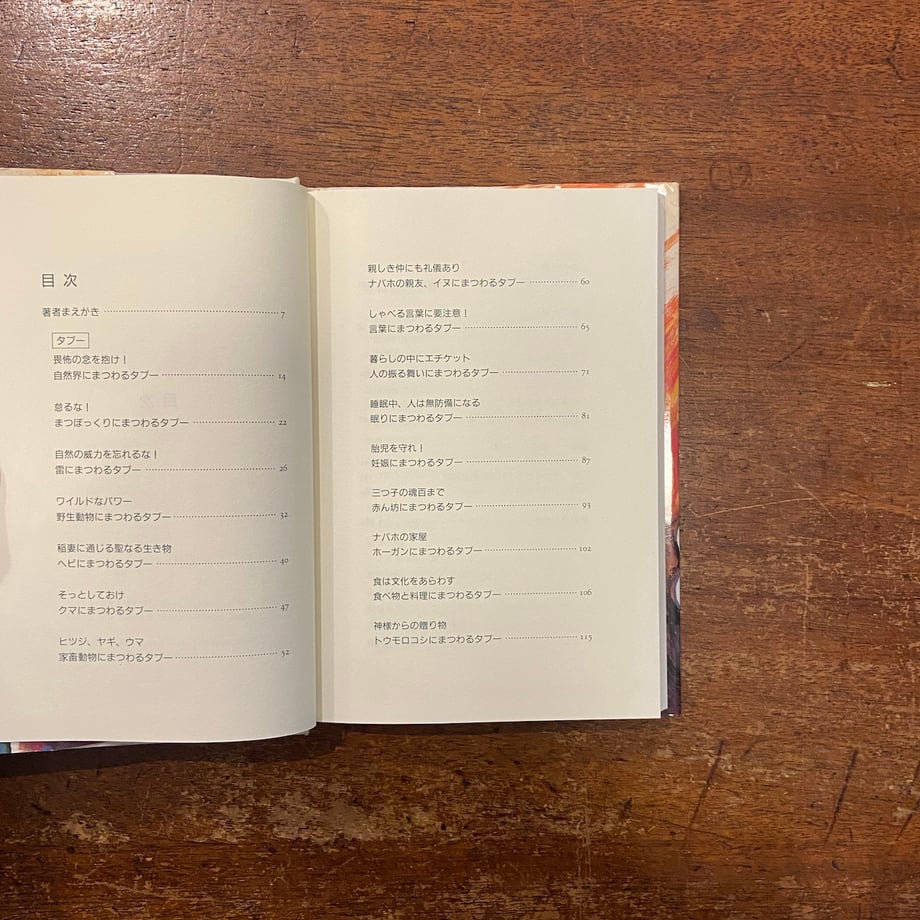 目次
著者まえがき 7
タブー
畏怖の念を抱け！
自然界にまつわるタブー 14
怠るな！
まつぼっくりにまつわるタブー 22
自然の威力を忘れるな！
雷にまつわるタブー 26
ワイルドなパワー
野生動物にまつわるタブー 32
稲妻に通じる聖なる生き物
ヘビにまつわるタブー 40
そっとしておけ
クマにまつわるタブー 47
ヒツジ、ヤギ、ウマ
家畜動物にまつわるタブー 52
親しき仲にも礼儀あり
ナバホの親友、イヌにまつわるタブー 60
しゃべる言葉に要注意！
言葉にまつわるタブー 65
暮らしの中にエチケット
人の振る舞いにまつわるタブー 71
睡眠中、人は無防備になる
眠りにまつわるタブー 81
胎児を守れ！
妊娠にまつわるタブー 87
三つ子の魂百まで
赤ん坊にまつわるタブー 93
ナバホの家屋
ホーガンにまつわるタブー 102
食は文化をあらわす
食べ物と料理にまつわるタブー 106
神様からの贈り物
トウモロコシにまつわるタブー 115